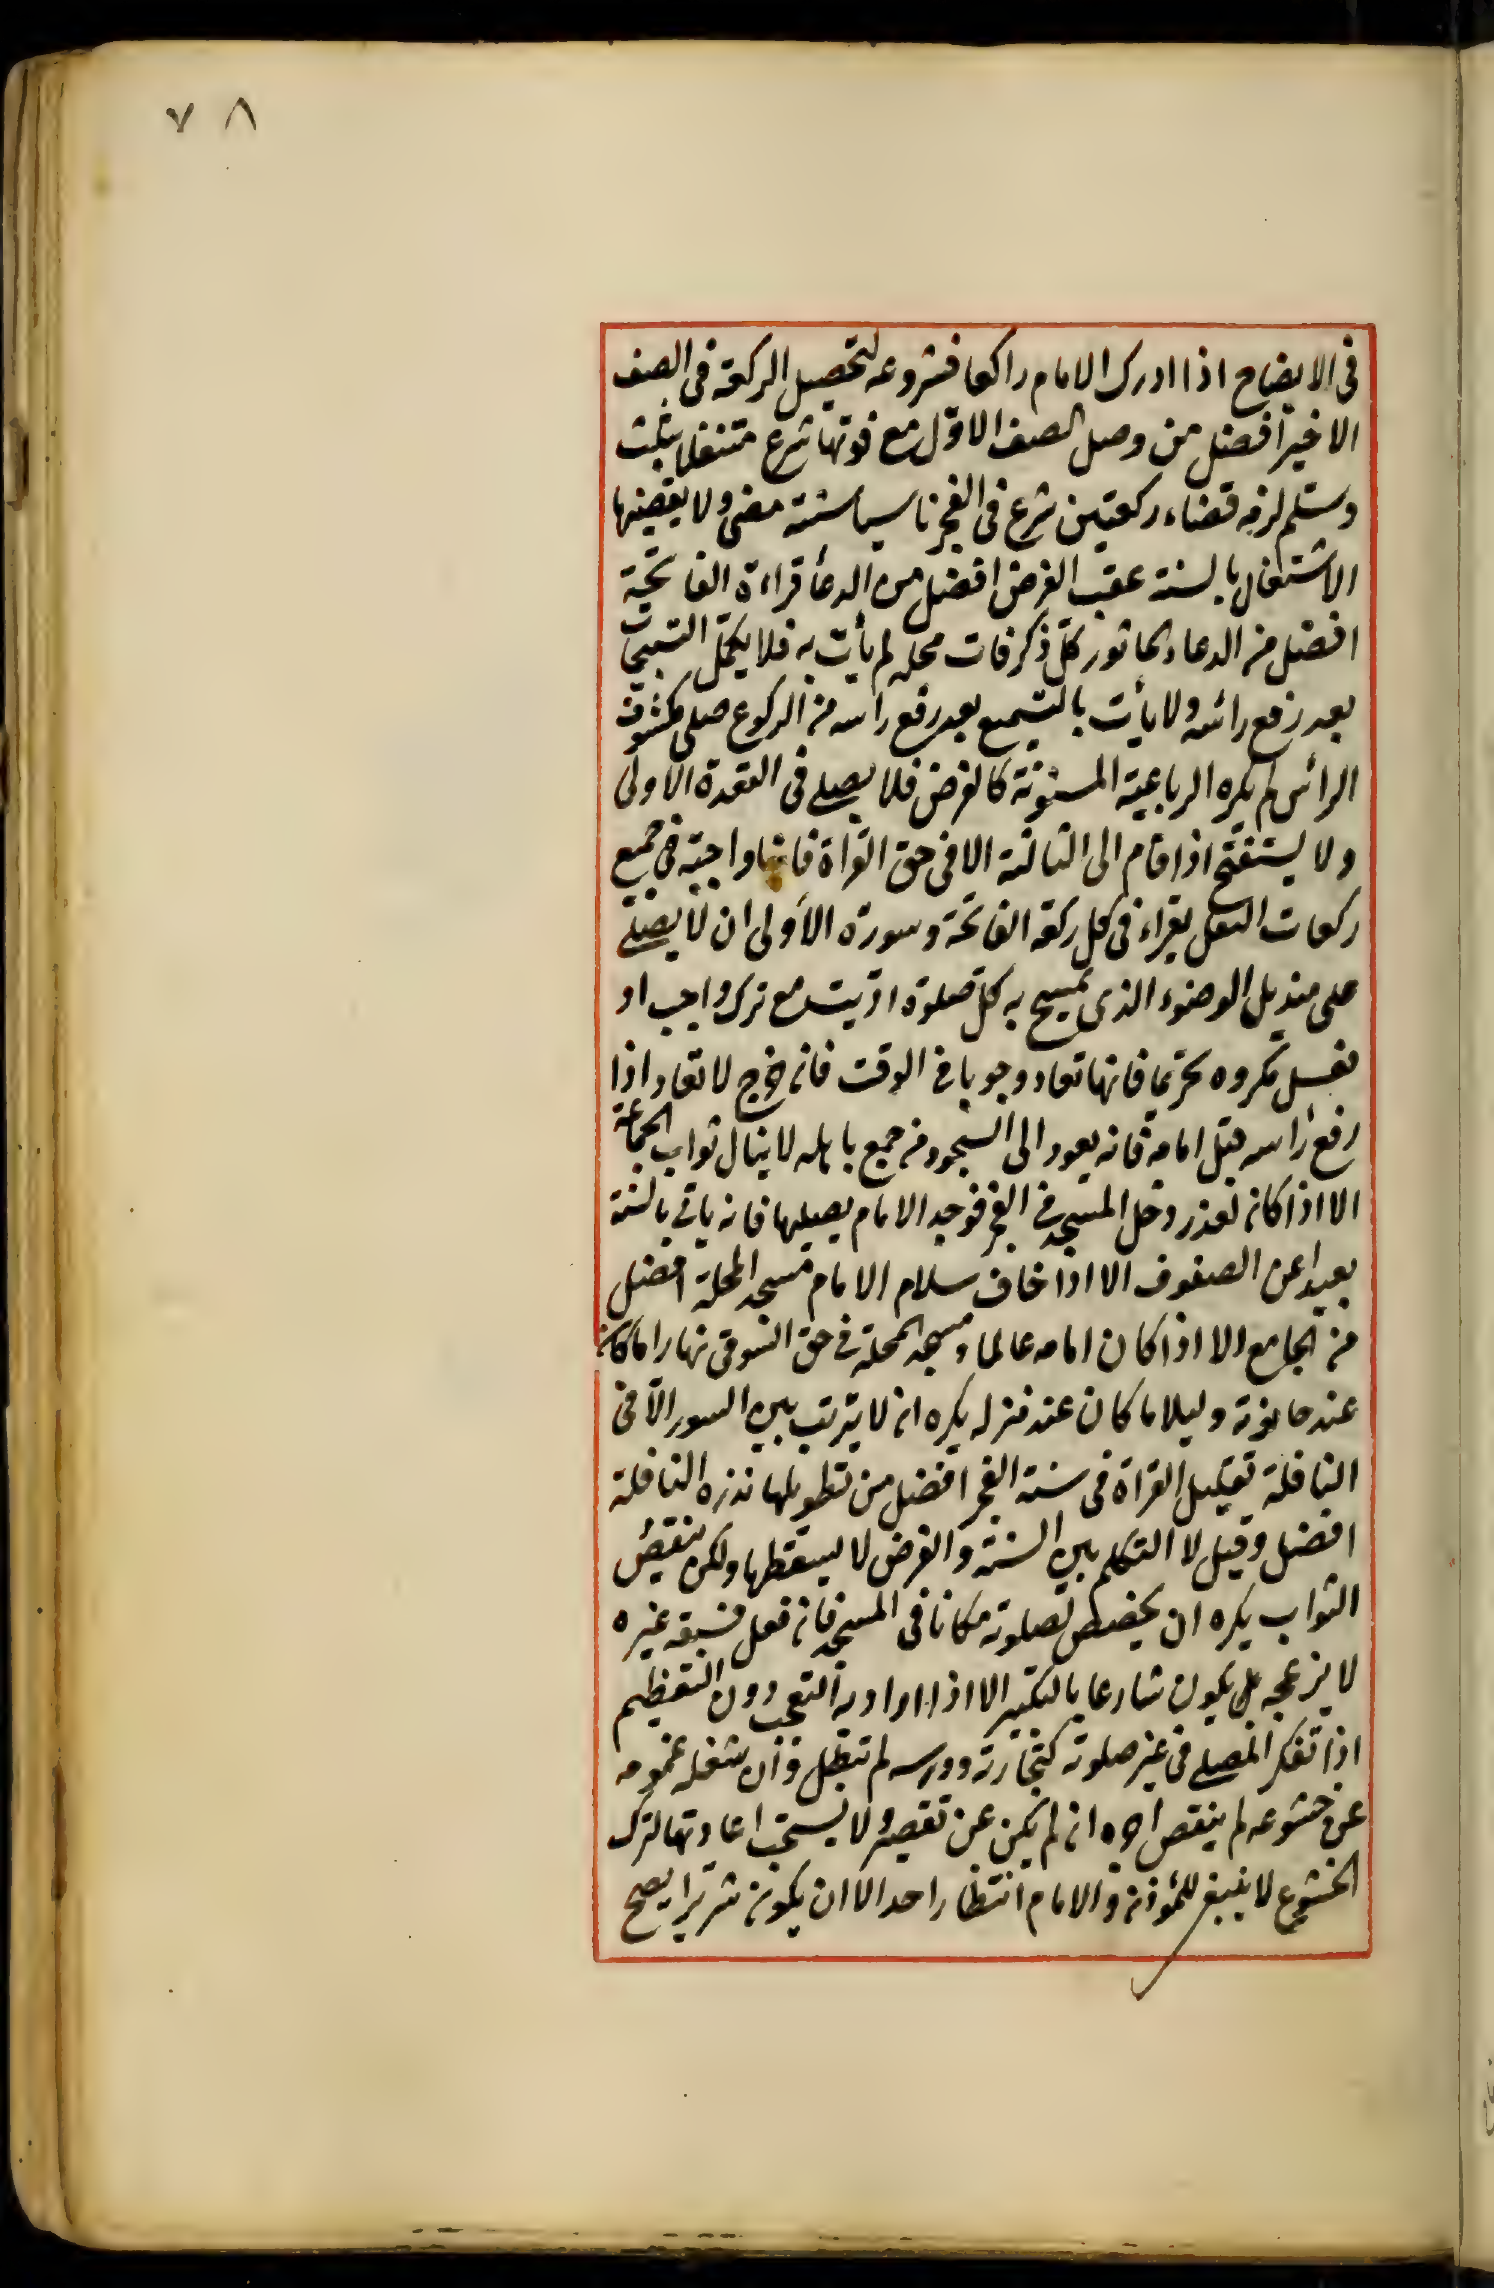 ٧٨
فى الايضاح اذا ادرك الامام راكعا فشروعه لتحصيل الركعة فى الصف
الاخير افضل من وصل الصف الاوّل مع فوتها شرع متنفلا بثلث
وسلّم لزمه قضاء ركعتين شرع فى الفجر ناسيا سنته مضى ولا يقضيها
الاشتغال بالسنة عقب الفرض افضل من الدعأ قراءة الفاتحة
افضل من الدعاء الماثور كلّ ذكر فات محله لم يأت به فلا يكمّل التسبيحات
بعد رفع رائسه ولا يأت بالتسميع بعد رفع راسه من الركوع صلى مكشوف
الرائس لم يكره الرباعية المسنونة كالفرض فلا يصلى فى القعدة الاولى
ولا يستفتح اذا قام الى الثالثة الا فى حق القراة فانها واجبة فى جميع
ركعات النفل يقراء فى كل ركعة الفاتحة وسورة الأولى ان لا يصلى
على منديل الوضوء الذى يمسح به كل صلوة ادّيت مع ترك واجب او
فعل مكروه تحريما فانها تعاد وجوبا فى الوقت فان خرج لا تعاد اذا
رفع رأسه قبل امامه فانه يعود الى السجود من جمع باهله لا ينال ثواب الجماعة
الا اذا كان لعذر دخل المسجد فى الفجر فوجد الامام يصليها فانه ياتى بالسنة
بعيدا عن الصفوف الا اذا خاف سلام الامام مسجد المحلة افضل
من الجامع الا اذا كان امامه عالما ومسجد المحلة فى حق السوقى نهارا ما كان
عند حانوته وليلا ما كان عند منزله يكره ان لا يترتب بين السور الّا فى
النافلة تقليل القراة فى سنة الفجر افضل من تطويلها نذره النافلة
افضل وقيل لا التكلم بين السنة والفرض لا يسقطها ولكن ينقص
الثواب يكره ان يخصص لصلوته مكانا فى المسجد فان فعل فسبقه غيره
لا يزعجه بل يكون شارعا بالتكبير الا اذا اراد به التعجب دون التعظيم
اذا تفكر المصلى فى غير صلوته كتجارته ودرسه لم تبطل وان شغله غمومه
عن خشوعه لم ينقص اجره ان لم يكن عن تقصير ولا يستحب اعادتها لترك
الخشوع لا ينبغى للمؤذن والامام انتظار احد الا ان يكون شريرا يصح